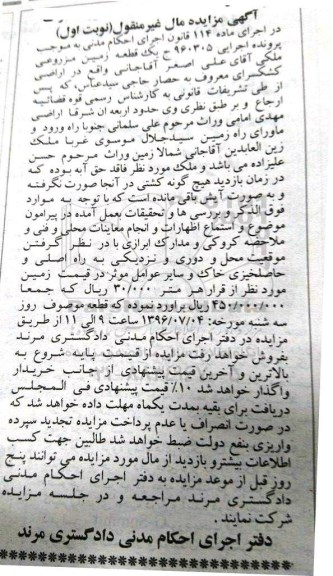 آگهی مزایده مال غیرمنقول(نوبت اول)
در اجرای ماده ۱۱۴ قانون اجرای احکام مدنی به موجب
پرونده اجرایی ۹۶۰۳۰۵ ج یک قطعه زمین مزروعی
ملکی آقای علی اصغر آقاجانی واقع در اراضی
کشکسرای معروف به حصار حاجی سیدعباس، که پس
از طی تشریفات قانونی به کارشناس رسمی قوه قضائیه
ارجاع و بر طبق نظری وی حدود اربعه ان شرقا اراضی
مهدی امامی وراث مرحوم علی سلمانی جنوبا راه ورود و
ماورای راه زمین سیدجلال موسوی غربا ملک
زین العابدین آقاجانی شمالا زمین وراث مرحوم حسن
علیزاده می باشد و ملک مورد نظر فاقد حق آبه بوده که
در زمان بازدید هیچ گونه کشتی در آنجا صورت نگرفته
و به صورت آیش باقی مانده است که با توجه به موارد
فوق الذکر و بررسی ها و تحقیقات بعمل آمده در پیرامون
موضوع و استماع اظهارات و انجام معاینات محلی و فنی و
ملاحضه کروکی و مدارک ابرازی با در نظر گرفتن
موقعیت محل و دوری و نزدیکی به راه اصلی و
حاصلخیزی خاک و سایر عوامل موثر در قیمت زمین
مورد نظر از قرار هر متر ۳۰/۰۰۰ ریال که جمعا
۴۵۰/۰۰۰/۰۰۰ ریال براورد نموده که قطعه موصوف روز
سه شنبه مورخه: ۱۳۹۶/۰۷/۰۴ ساعت ۹ الی ۱۱ از طریق
مزایده در دفتر اجرای احکام مدنی دادگستری مرند
بفروش خواهد رفت مزایده از قیمت پایه شروع به
بالاترین و آخرین قیمت پیشنهادی از جانب خریدار
واگذار خواهد شد ۱۰٪ قیمت پیشنهادی فی المجلس
دریافت برای بقیه بمدت یکماه مهلت داده خواهد شد که
در صورت انصراف یا عدم پرداخت مزایده تجدید سپرده
واریزی بنفع دولت ضبط خواهد شد طالبین جهت کسب
اطلاعات بیشترو بازدید از مال مورد مزایده می توانند پنج
روز قبل از موعد مزایده به دفتر اجرای احکام مدنی
دادگستری مرند مراجعه و در جلسه مزایده
شرکت نمایند .
دفتر اجرای احکام مدنی دادگستری مرند